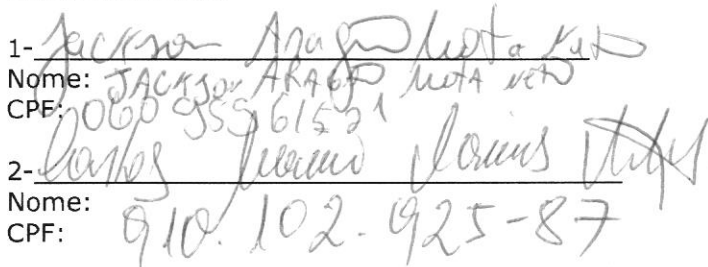 1- Jackson Aragão Mota Neto
Nome: JACKSON ARAGÃO MOTA NETO
CPF: 060 955 615 21
2- Carlos
Nome:
CPF: 910.102.925-87